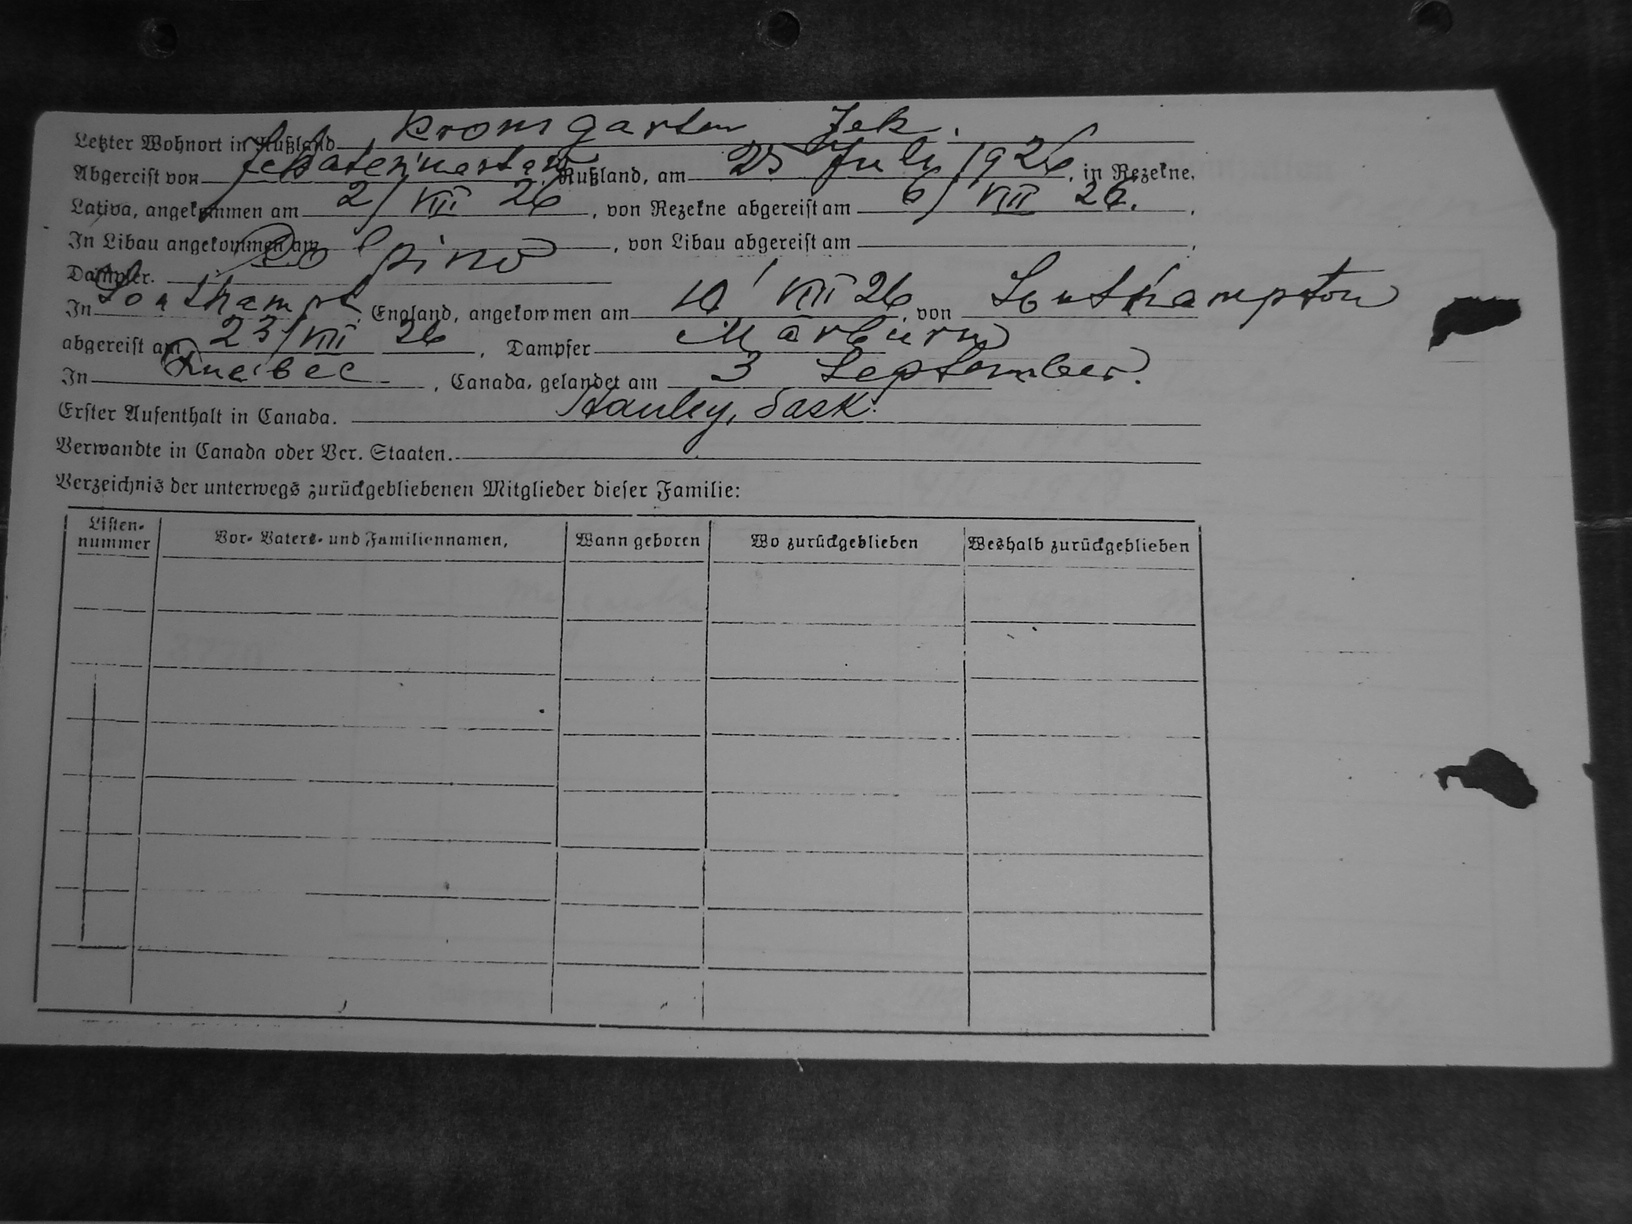 Letzter Wohnort in Rußland Kronsgarten Jek.
Abgereist von Jekaterinoslaw, Rußland, am 25 July 1926, in Rezekne,
Lativa, angekommen am 2/VIII 26, von Rezekne abgereist am 6/VIII 26.,
In Libau angekommen am, von Libau abgereist am,
Dampfer.
In Southampt. England, angekommen am 10/VIII 26, von Southampton
abgereist am 23/VIII 26, Dampfer Marburn
In Queibec, Canada, gelandet am 3 September.
Erster Aufenthalt in Canada. Hanley, Sask.
Verwandte in Canada oder Ver. Staaten.
Verzeichnis der unterwegs zurückgebliebenen Mitglieder dieser Familie:
Listen-nummer Vor- Vaters- und Familiennamen, Wann geboren Wo zurückgeblieben Weshalb zurückgeblieben